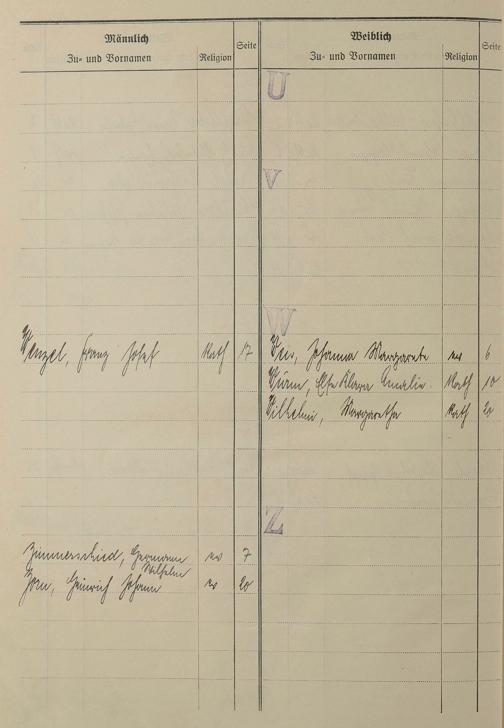 Männlich
Zu- und Vornamen
Religion
Seite
Weiblich
Zu- und Vornamen
Religion
Seite
U
V
W
Wenzel, Franz Josef Kath 17
Johanna Margarete ev 6
Würm, Else Klara Amalie Kath 10
Wilhelmi, Margaretha Kath 20
Z
Zimmerschied, Hermann ev 7
Wilhelm
Zorn, Heinrich Johann ev 20